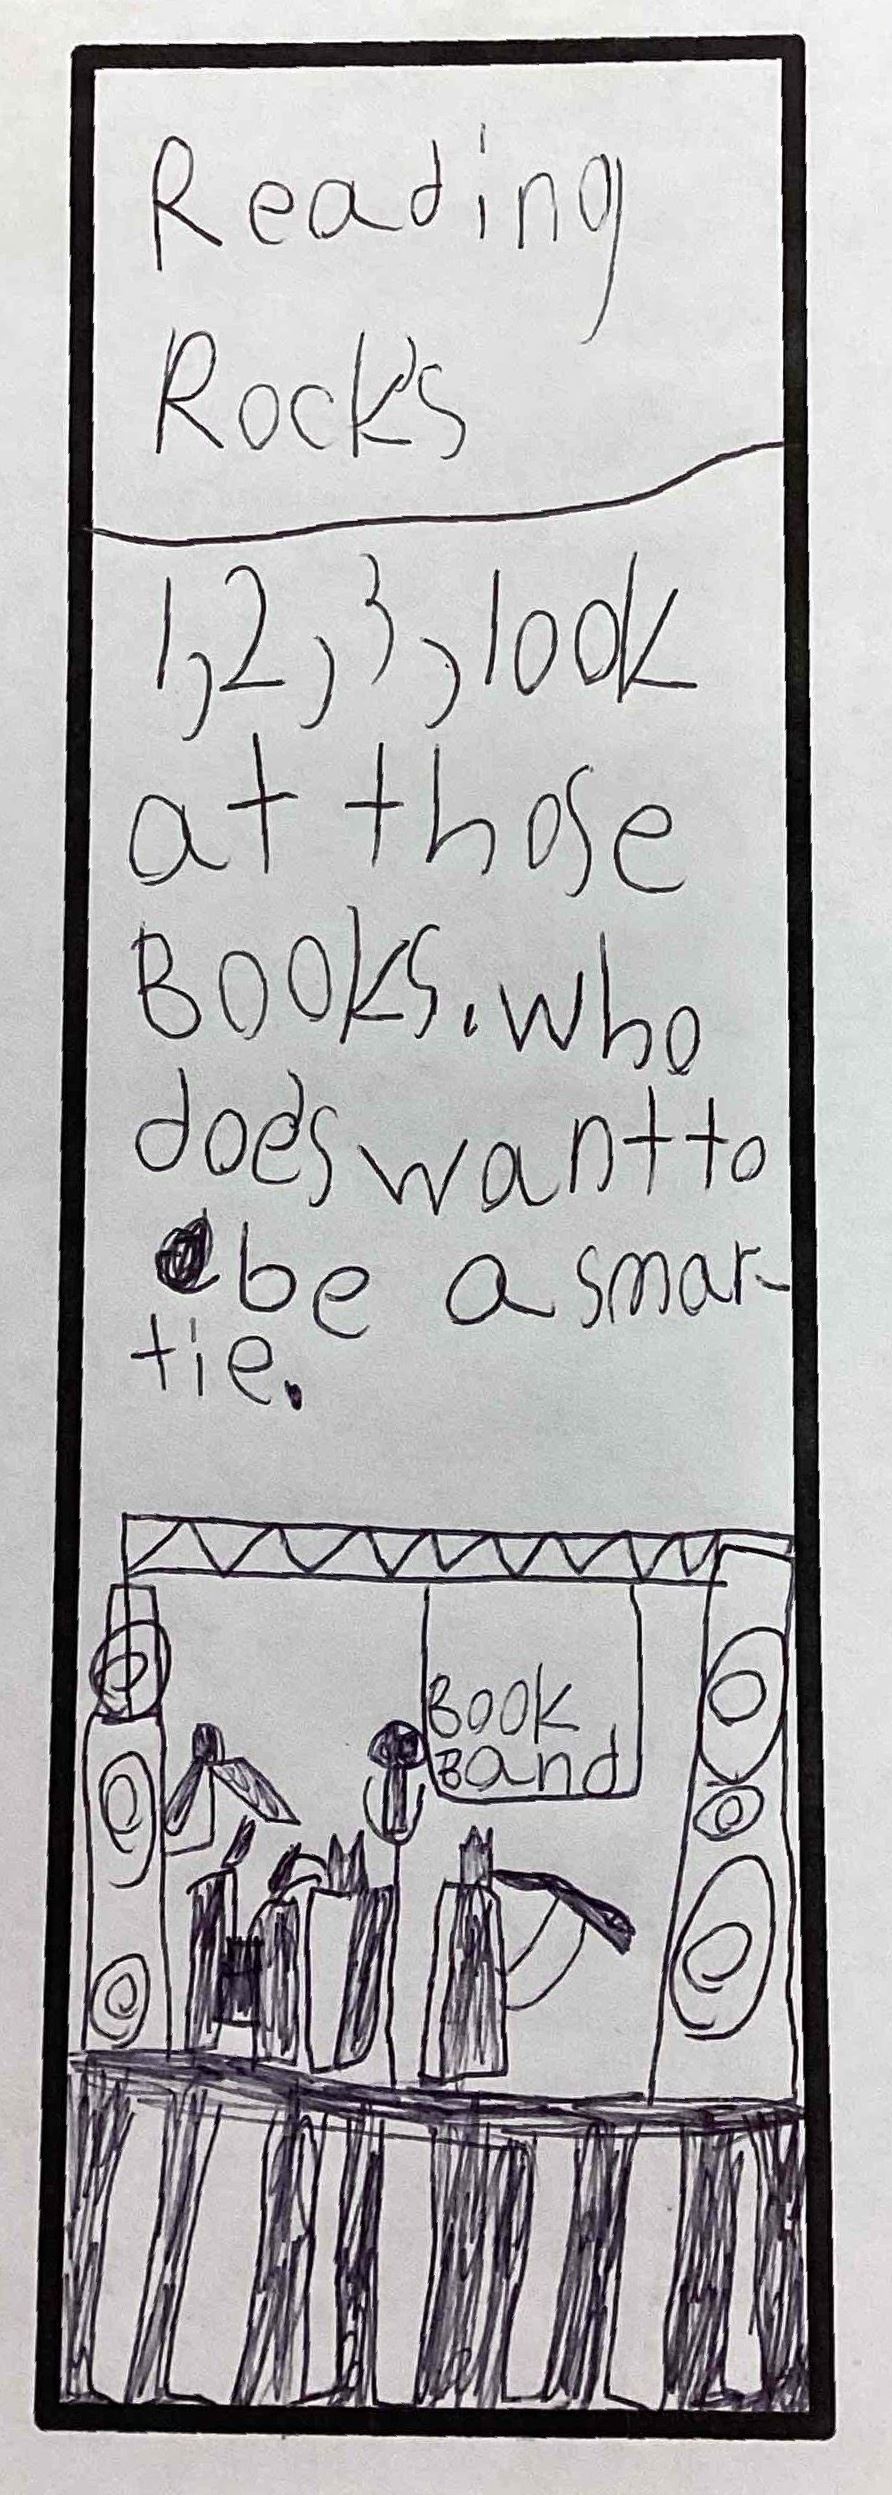 Reading
Rock's
1,2,3,look
at those
BOOKS. who
does want to
be a smar-
tie.
BOOK
Band